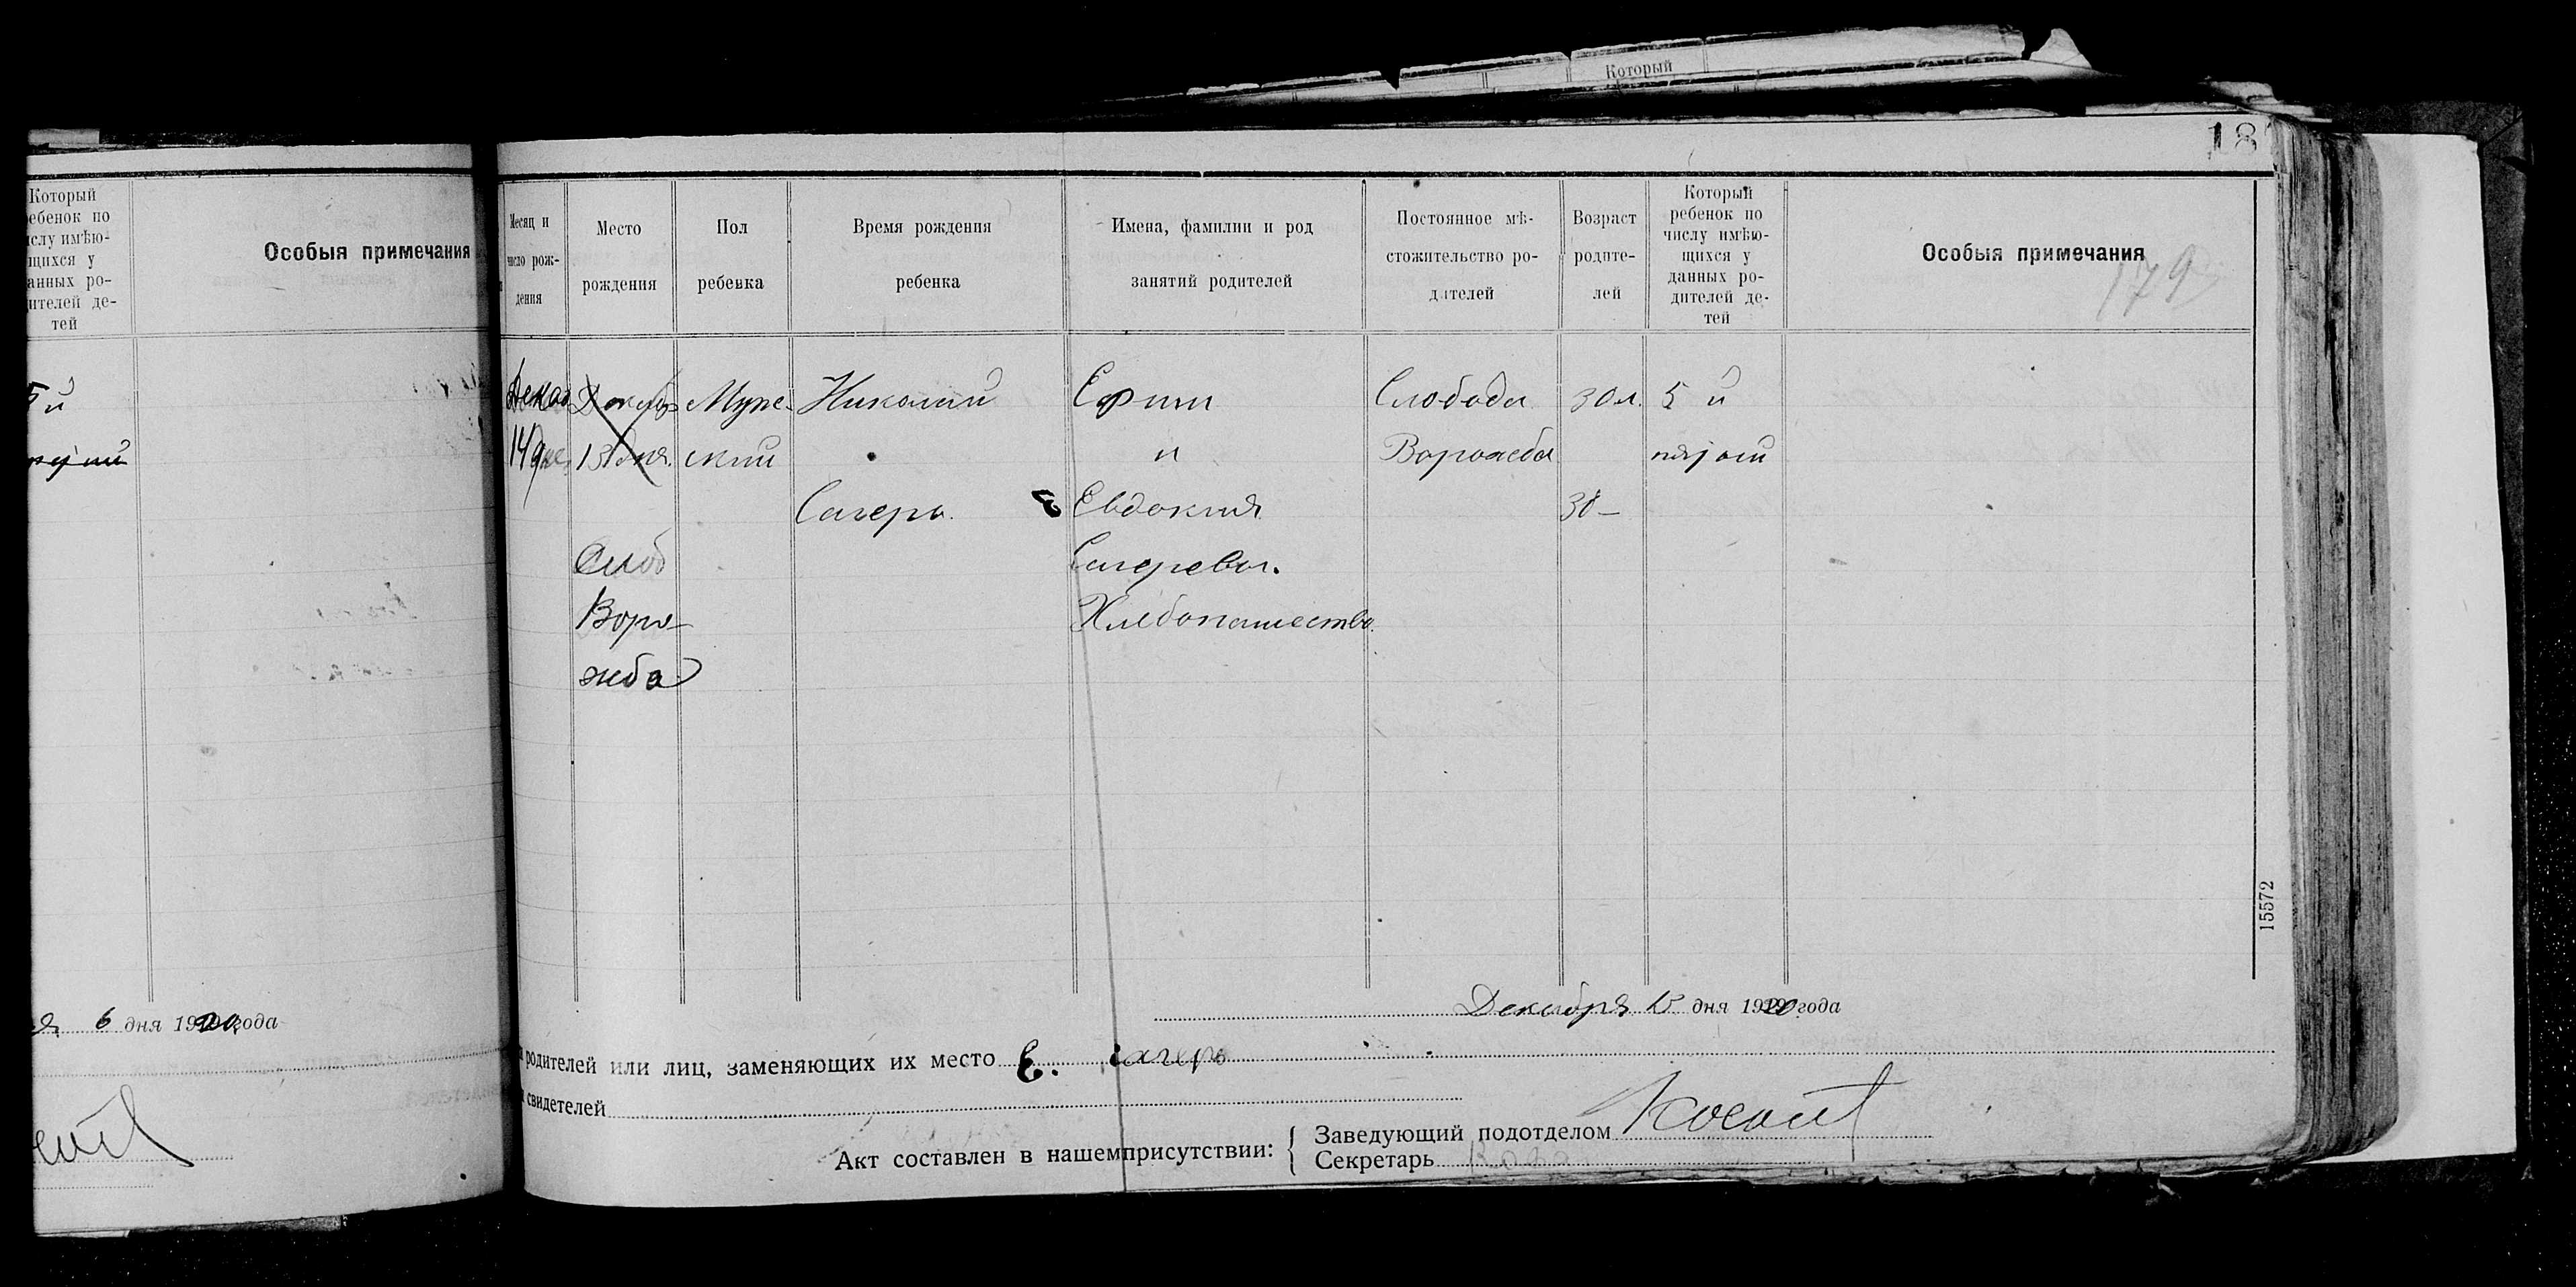 Который
18
Который
ебенок по
слу имѣю-
щихся у
анных ро-
ителей де-
тей
Особыя примечания
5 й
6 дня 1920 года
Месяц и
число рож-
дения
Место
рождения
Пол
ребенка
Время рождения
ребенка
Имена, фамилии и род
занятий родителей
Постоянное мѣ-
стожительство ро-
дителей
Возраст
родите-
лей
Который
ребенок по
числу имѣю-
щихся у
данных ро-
дителей де-
тей
Особыя примечания
179
Декаб
14 дня
Декабр
13 дня.
Слоб
Воро-
жба
Муж-
ский
Николай
Сагерь.
Ефим
и
Евдокия
Сагерева.
Хлебопашество.
Слобода
Ворожба
30 л.
30 –
5 й
пятый
15572
Декабря 15 дня 1920 года
родителей или лиц, заменяющих их место Е. Сагерь
свидетелей
Акт составлен в нашем присутствии:
Заведующий подотделом
Секретарь